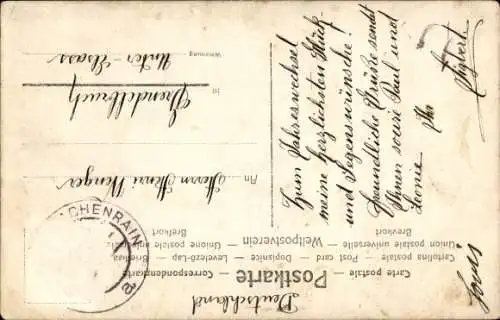 Deutschland
Postkarte
Carte postale — Correspondenzkarte
Cartolina postale — Post card — Dopisnice — Levelező-Lap — Briefkaart
Union postale universelle — Unione postale
Weltpostverein
Brefkort
Brevkort
An
Herrn Henri Wenger
in
Grendelbruch
Wohnung
Unter-Elsass
CHENRAIN
Zum Jahreswechsel
meine herzlichsten Glück-
und Segenswünsche!
Freundliche Grüße sendet
Ihnen sowie Paul und
Leonie
Ihr